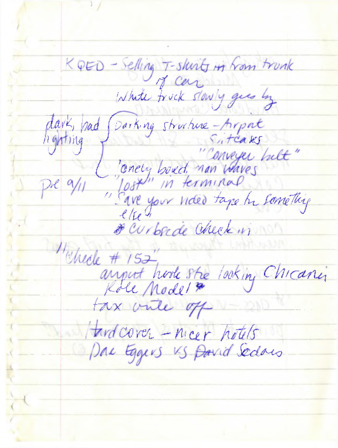 KQED - Selling T-shirts from trunk
of car
White truck slowly goes by
dark, bad lighting
Parking structure - Airport
Suitcases
"Conveyer belt"
lonely bored man waves
pre 9/11
"lost" in terminal
"Save your video tape for something
else"
* Curbside check in
"Check # 152"
airport book store looking Chicano
Role Model*
tax write off
Hardcover - nicer hotels
Dave Eggers vs David Sedaris